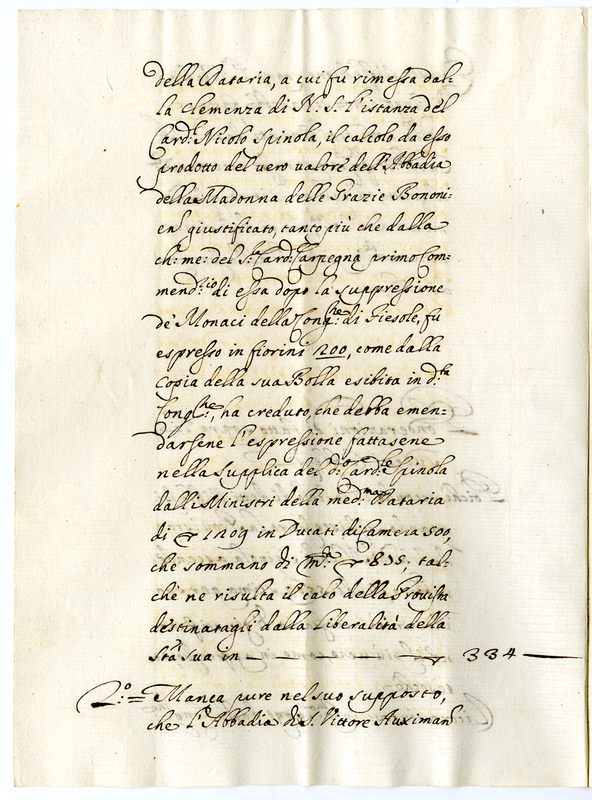 della Dataria, a cui fu rimessa dal:
la clemenza di N: S: l'istanza del
Card.l Nicolò Spinola, il calcolo da esso
prodotto del vero valore dell'Abbadia
della Madonna delle Grazie Bononi:
en. giustificato, tanto più che dalla
ch: me: del S.r Card: Carpegna primo Com:
mend.rio di essa dopo la suppressione
de' Monaci della Cong.ne di Fiesole, fu
espresso in fiorini 200, come dalla
copia della sua Bolla esibita in d.ta
Cong.ne, ha creduto, che debba emen:
darsene l'espressione fattasene
nella supplica del d.o Card.le Spinola
dalli Ministri della med.ma Dataria
di 1209 in Ducati di Camera 500,
che sommano di m.ta 835; tal:
che ne risulta il calo della Provista
destinatagli dalla Liberalità della
S.tà sua in 334
2.o = Manca pure nel suo supposto,
che l'Abbadia di S. Vittore Auximan